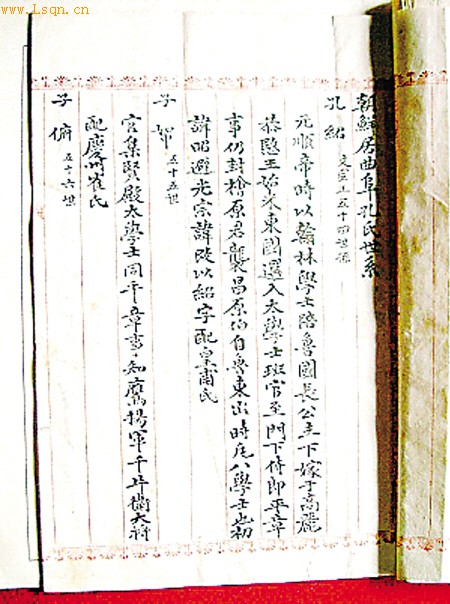 www.Lsqn.cn
朝鮮居曲阜孔氏世系
孔紹 文宣王五十四世孫
元順帝時以翰林學士陪魯國長公主下嫁于高麗
恭愍王始來東國選入太學士班官至門下侍郎平章
事仍封檜原君襲昌原伯自魯東出時庭八學士也初
諱昭避光宗諱改以紹字配皇甫氏
子 帑 五十五世
官集賢殿太學士同平章事知鷹揚軍千牛衛大將
配慶州崔氏
子 俯 五十六世